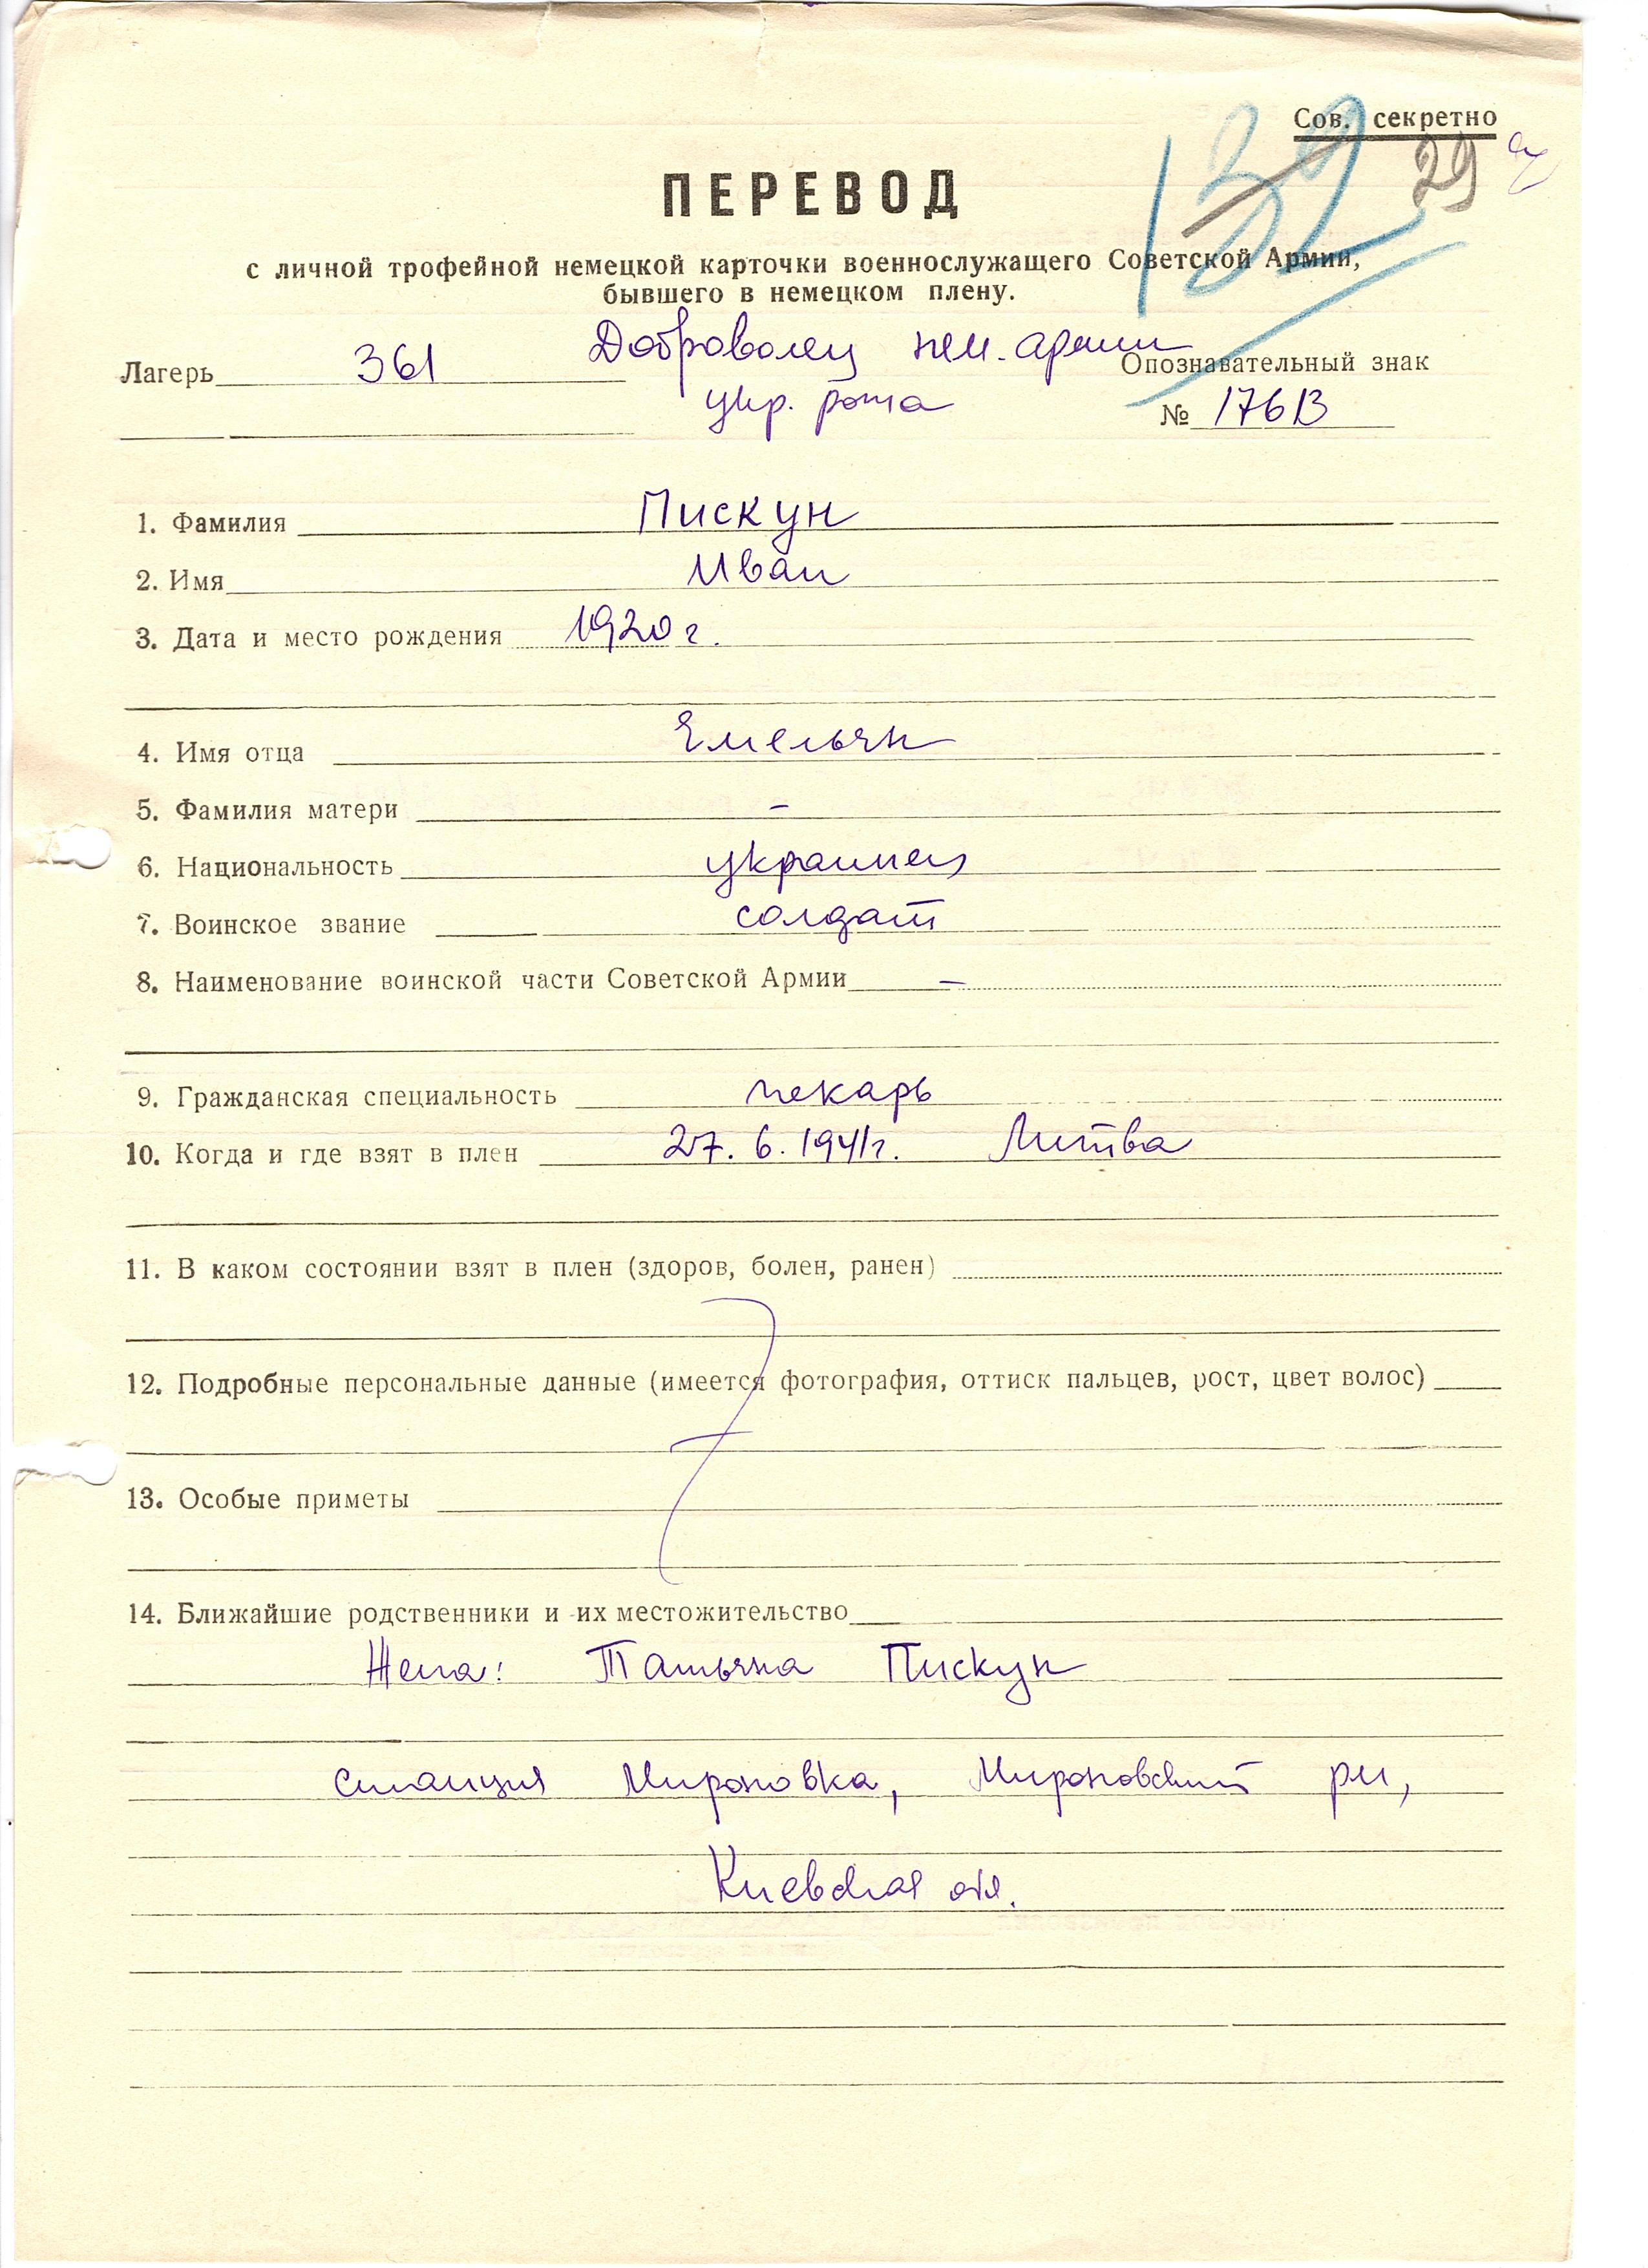 Сов. секретно
132
29
ПЕРЕВОД
с личной трофейной немецкой карточки военнослужащего Советской Армии,
бывшего в немецком плену.
Доброволец нем. армии
Лагерь 361 Опознавательный знак
укр. рота
№ 176 B
1. Фамилия Пискун
2. Имя Иван
3. Дата и место рождения 1920 г.
4. Имя отца Емельян
5. Фамилия матери –
6. Национальность украинец
7. Воинское звание солдат
8. Наименование воинской части Советской Армии –
9. Гражданская специальность пекарь
10. Когда и где взят в плен 27. 6. 1941г. Литва
11. В каком состоянии взят в плен (здоров, болен, ранен)
12. Подробные персональные данные (имеется фотография, оттиск пальцев, рост, цвет волос)
13. Особые приметы
14. Ближайшие родственники и их местожительство
Жена: Татьяна Пискун
станция Мироновка, Мироновский рн,
Киевская обл.